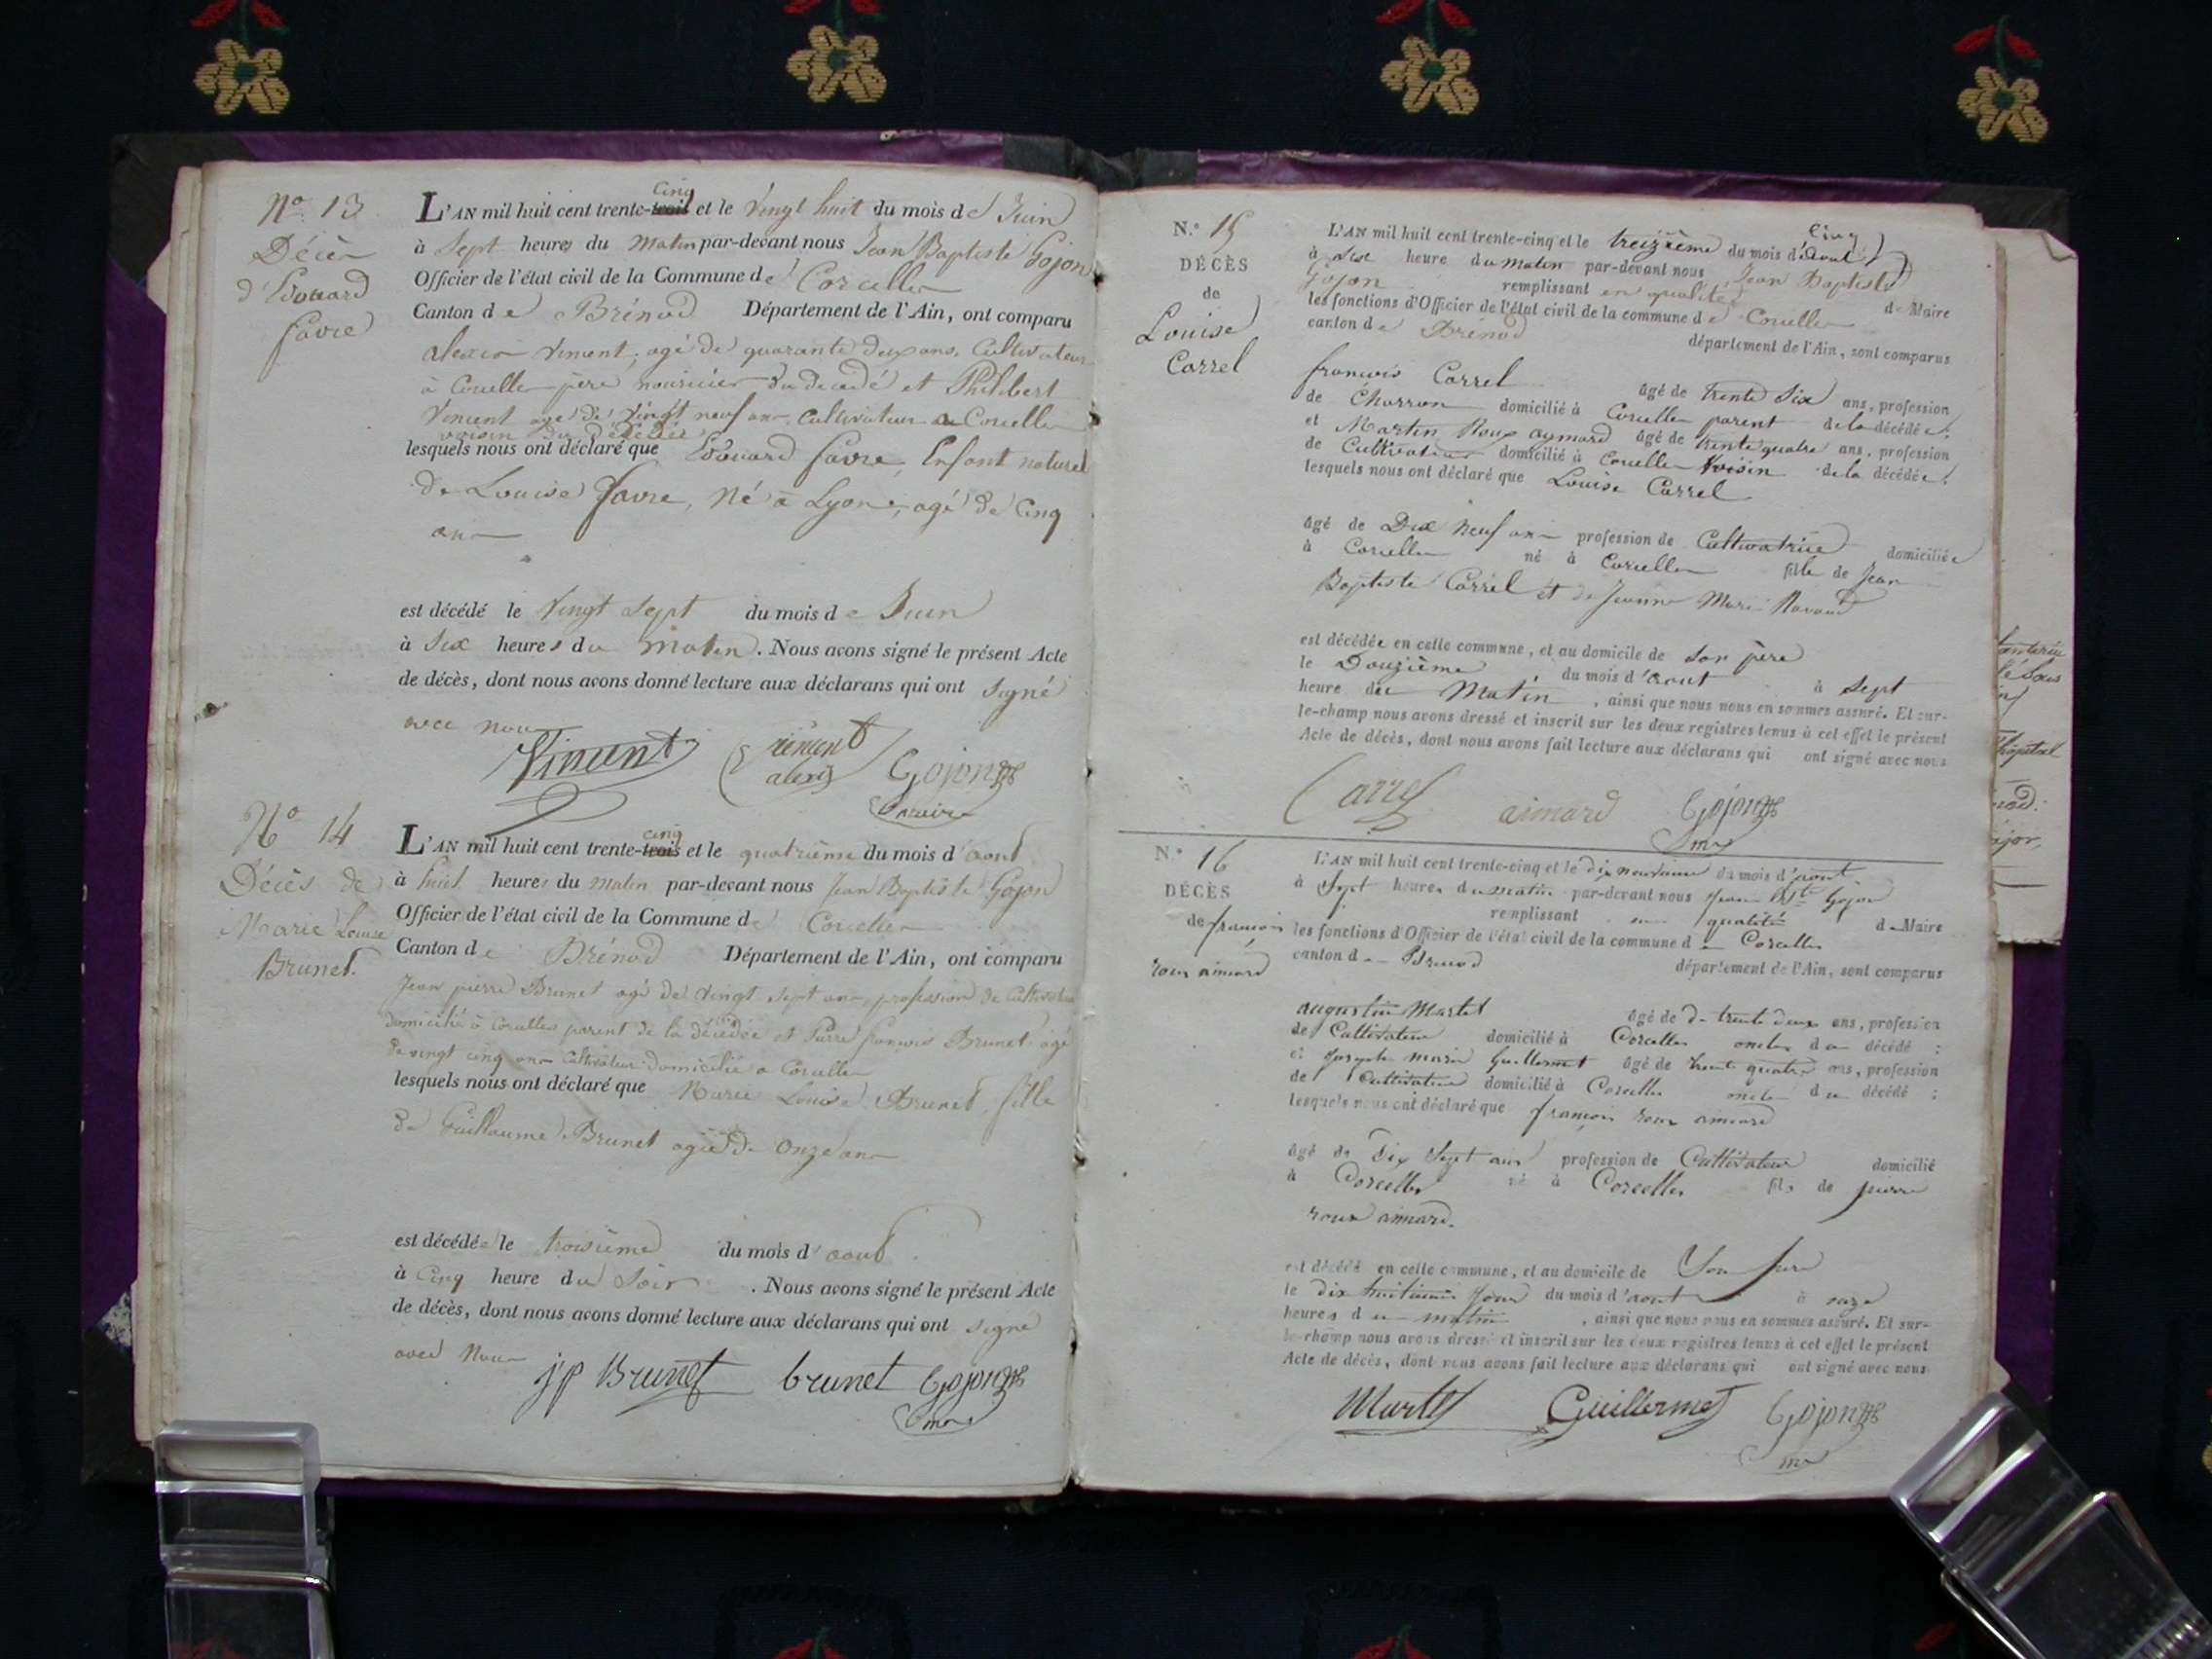 N.º 13
Décès
d'Edouard
favre
L'AN mil huit cent trente-trois cinq et le Vingt huit du mois de Juin
à Sept heures du Matin par-devant nous Jean Baptiste Gojon
Officier de l'état civil de la Commune de Corcelles
Canton de Brénod Département de l'Ain, ont comparu
alexis Vincent, agé de quarante deux ans, Cultivateur
à Corcelles père nouricier du decedé et Philibert
Vincent agé de Vingt neuf ans cultivateur a Corcelles
voisin du décédé
lesquels nous ont déclaré que Edouard favre, Enfant naturel
de Louise favre, né à Lyon, agé de Cinq
ans
est décédé le Vingt Sept du mois de Juin
à Six heures du matin. Nous avons signé le présent Acte
de décès, dont nous avons donné lecture aux déclarans qui ont signé
avec nous
Vincent vincent alexis Gojon
maire
Nº 14
Décès de
Marie Louise
Brunet.
L'AN mil huit cent trente-trois cinq et le quatrième du mois d'aout
à huit heures du matin par-devant nous Jean Baptiste Gojon
Officier de l'état civil de la Commune de Corcelles
Canton de Brénod Département de l'Ain, ont comparu
Jean pierre Brunet agé de vingt sept ans, profession de Cultivateur
domicilié à Corcelles parent de la décédée et Pierre françois Brunet agé
de vingt cinq ans Cultivateur domicilié a Corcelles
lesquels nous ont déclaré que Marie Louise Brunet, fille
de Guillaume Brunet agée de onze ans
est décédée le troisième du mois d'aout
à Cinq heure du Soir. Nous avons signé le présent Acte
de décès, dont nous avons donné lecture aux déclarans qui ont signé
avec Nous
jp Brunet brunet Gojon
N.º 15
DÉCÈS
de
Louise
Carrel
L'AN mil huit cent trente-cinq et le treizième du mois d'aout
à Six heure du matin par-devant nous Jean Baptiste
Gojon remplissant en qualité de Maire
les fonctions d'Officier de l'état civil de la commune de Corcelles
canton de Brenod département de l'Ain, sont comparus
francois Carrel agé de trente Six ans, profession
de Charron domicilié à Corcelles parent de la décédée;
et Martin Roux aymard âgé de trente quatre ans, profession
de Cultivateur domicilié à Corcelles Voisin de la décédée;
lesquels nous ont déclaré que Louise Carrel
âgé de Dix Neuf ans profession de Cultivatrice domiciliée
à Corcelles né à Corcelles fille de Jean
Baptiste Carrel et de Jeanne Marie Ravaud
est décédée en cette commune, et au domicile de Son père
le Douzième du mois d'aout à Sept
heure du Matin, ainsi que nous nous en sommes assuré. Et sur-
le-champ nous avons dressé et inscrit sur les deux registres tenus à cet effet le présent
Acte de décès, dont nous avons fait lecture aux déclarans qui ont signé avec nous
Carrel aimard Gojon
N.º 16
DÉCÈS
de françois
roux aimard
L'AN mil huit cent trente-cinq et le dix neuvième du mois d'aout
à Sept heures du matin par-devant nous Jean Bte Gojon
remplissant en qualité de Maire
les fonctions d'Officier de l'état civil de la commune de Corcelles
canton de Brenod département de l'Ain, sont comparus
augustin Martel âgé de trente deux ans, profession
de Cultivateur domicilié à Corcelles oncles du décédé;
et Joseph marie Guillermet âgé de trente quatre ans, profession
de Cultivateur domicilié à Corcelles oncle du décédé;
lesquels nous ont déclaré que françois roux aimard
âgé de Dix Sept ans profession de Cultivateur domicilié
à Corcelles né à Corcelles fils de pierre
roux aimard.
est décédé en cette commune, et au domicile de Son père
le dix huitième jour du mois d'aout à onze
heures du matin, ainsi que nous nous en sommes assuré. Et sur-
le-champ nous avons dressé et inscrit sur les deux registres tenus à cet effet le présent
Acte de décès, dont nous avons fait lecture aux déclarans qui ont signé avec nous
Martel Guillermet Gojon